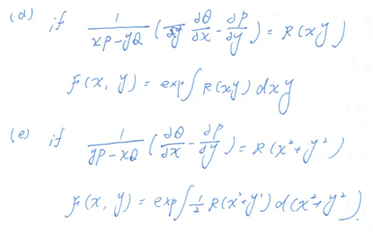 (d) if 1/(xP-yQ) (∂Q/∂x - ∂P/∂y) = R(xy)
F(x, y) = exp∫R(xy)dxy
(e) if 1/(yP-xQ) (∂Q/∂x - ∂P/∂y) = R(x²+y²)
F(x, y) = exp∫½R(x²+y²)d(x²+y²)